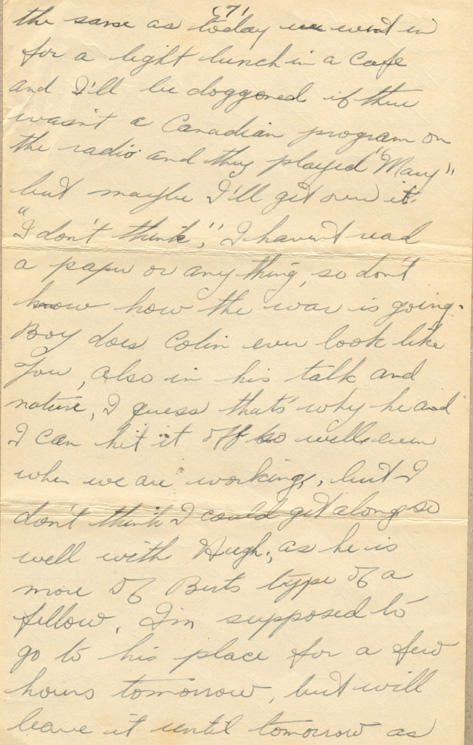 (7)
the same as today we went in
for a light lunch in a Cafe
and I'll be doggoned if there
wasn't a Canadian program on
the radio and they played "Mary"
but maybe I'll get over it.
"I don't think", I haven't read
a paper or anything, so don't
know how the war is going.
Boy does Colin ever look like
You, also in his talk and
nature, I guess that's why he and
I can hit it off so well even
when we are working, but I
don't think I could get along so
well with Hugh, as he is
more of Berts type of a
fellow. I'm supposed to
go to his place for a few
hours tomorrow, but will
leave it until tomorrow as